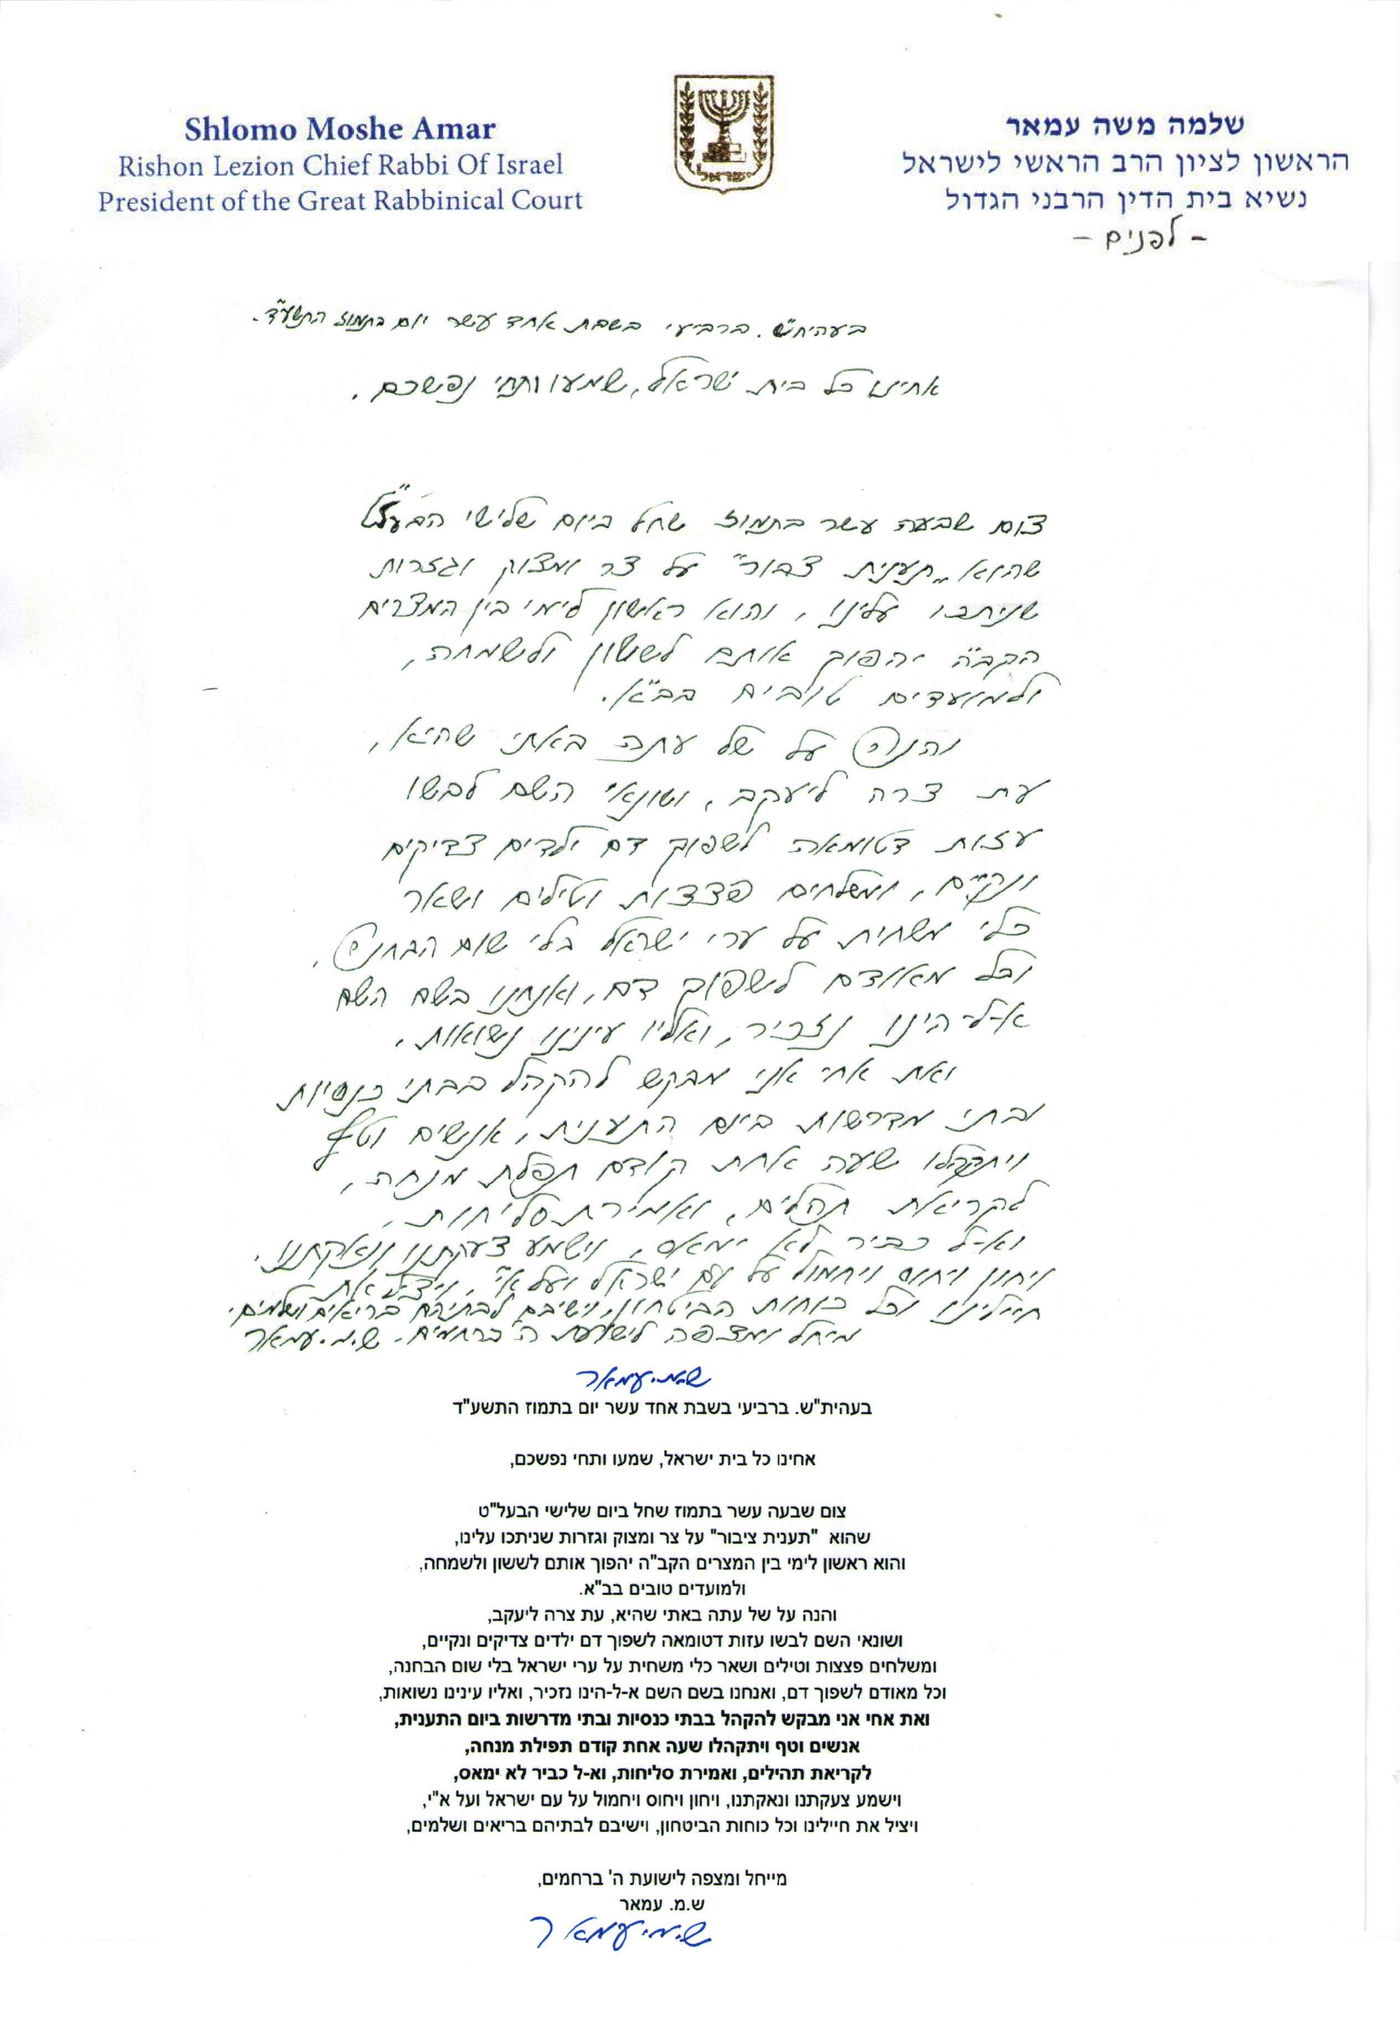 Shlomo Moshe Amar
Rishon Lezion Chief Rabbi Of Israel
President of the Great Rabbinical Court
ישראל
שלמה משה עמאר
הראשון לציון הרב הראשי לישראל
נשיא בית הדין הרבני הגדול
- לפנים -
בעהית"ש. ברביעי בשבת אחד עשר יום בתמוז התשע"ד.
אחינו כל בית ישראל, שמעו ותחי נפשכם.
צום שבעה עשר בתמוז שחל ביום שלישי הבעל"ט
שהוא "תענית צבור" על צר ומצוק וגזרות
שניתכו עלינו, והוא ראשון לימי בין המצרים
הקב"ה יהפוך אותם לששון ולשמחה,
ולמועדים טובים בב"א.
והנה על של עתה באתי שהיא,
עת צרה ליעקב, ושונאי השם לבשו
עזות דטומאה לשפוך דם ילדים צדיקים
ונקיים, ומשלחים פצצות וטילים ושאר
כלי משחית על ערי ישראל בלי שום הבחנה,
וכל מאודם לשפוך דם, ואנחנו בשם השם
א-ל-הינו נזכיר, ואליו עינינו נשואות,
ואת אחי אני מבקש להקהל בבתי כנסיות
ובתי מדרשות ביום התענית, אנשים וטף
ויתקהלו שעה אחת קודם תפלת מנחה,
לקריאת תהלים, ואמירת סליחות,
וא-ל כביר לא ימאס, וישמע צעקתנו ונאקתנו.
ויחון ויחוס ויחמול על עם ישראל ועל א"י, ויציל את
חיילינו וכל כוחות הביטחון, וישיבם לבתיהם בריאים ושלמים.
מיחל ומצפה לישועת ה' ברחמים. ש.מ. עמאר
ש.מ. עמאר
בעהית"ש. ברביעי בשבת אחד עשר יום בתמוז התשע"ד
אחינו כל בית ישראל, שמעו ותחי נפשכם,
צום שבעה עשר בתמוז שחל ביום שלישי הבעל"ט
שהוא "תענית ציבור" על צר ומצוק וגזרות שניתכו עלינו,
והוא ראשון לימי בין המצרים הקב"ה יהפוך אותם לששון ולשמחה,
ולמועדים טובים בב"א.
והנה על של עתה באתי שהיא, עת צרה ליעקב,
ושונאי השם לבשו עזות דטומאה לשפוך דם ילדים צדיקים ונקיים,
ומשלחים פצצות וטילים ושאר כלי משחית על ערי ישראל בלי שום הבחנה,
וכל מאודם לשפוך דם, ואנחנו בשם השם א-ל-הינו נזכיר, ואליו עינינו נשואות,
ואת אחי אני מבקש להקהל בבתי כנסיות ובתי מדרשות ביום התענית,
אנשים וטף ויתקהלו שעה אחת קודם תפילת מנחה,
לקריאת תהילים, ואמירת סליחות, וא-ל כביר לא ימאס,
וישמע צעקתנו ונאקתנו, ויחון ויחוס ויחמול על עם ישראל ועל א"י,
ויציל את חיילינו וכל כוחות הביטחון, וישיבם לבתיהם בריאים ושלמים,
מייחל ומצפה לישועת ה' ברחמים,
ש.מ. עמאר
ש.מ. עמאר